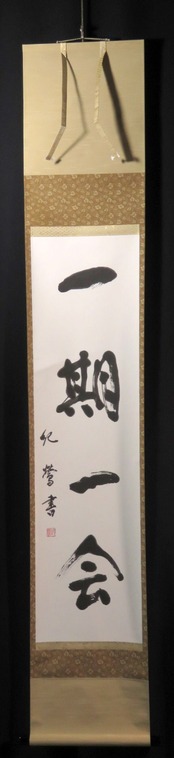 一期一会
紀鶯書